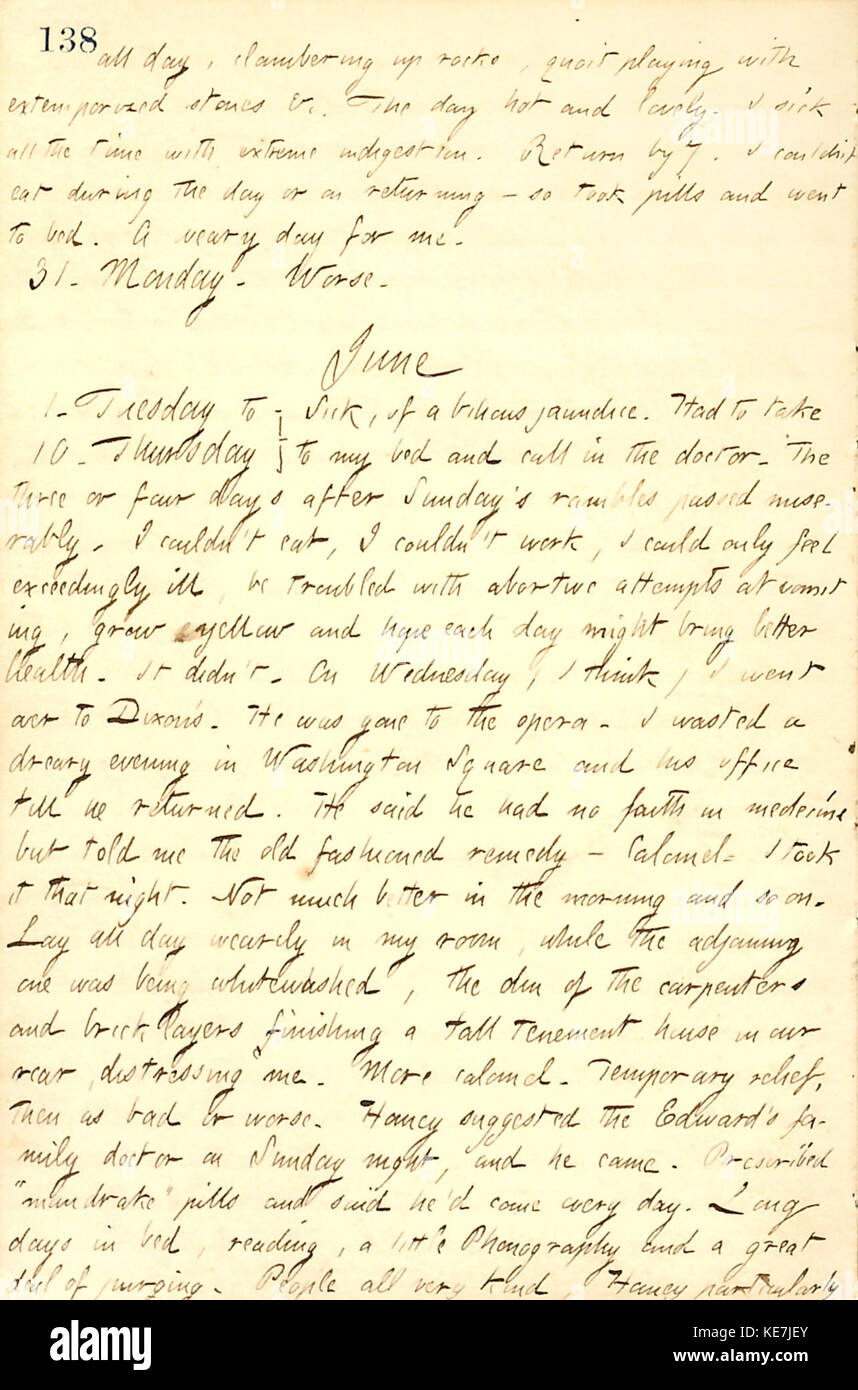 138
all day, clambering up rocks, quoit playing with
extemporized stones &c. The day hot and lovely. I sick
all the time with extreme indigestion. Return by 7. I couldn't
eat during the day or on returning — so took pills and went
to bed. A weary day for me.
31. Monday. Worse.
June
1. Tuesday to } Sick, of a bilious jaundice. Had to take
10. Thursday } to my bed and call in the doctor. The
three or four days after Sunday's rambles passed mise-
rably. I couldn't eat, I couldn't work, I could only feel
exceedingly ill, be troubled with abortive attempts at vomit
ing, grow yellow and hope each day might bring better
health. It didn't. On Wednesday, I think, I went
over to Dixon's. He was gone to the opera. I wasted a
dreary evening in Washington Square and his office
till he returned. He said he had no faith in medecine
but told me the old fashioned remedy — Calomel. I took
it that night. Not much better in the morning and so on.
Lay all day wearily in my room, while the adjoining
one was being whitewashed, the din of the carpenters
and bricklayers finishing a tall tenement house in our
rear, distressing me. More calomel. Temporary relief,
then as bad or worse. Haney suggested the Edward's fa-
mily doctor on Sunday night, and he came. Prescribed
"mandrake" pills and said he'd come every day. Long
days in bed, reading, a little Phonography and a great
deal of purging. People all very kind, Haney particularly
alamy
Image ID: KE7JEY
www.alamy.com